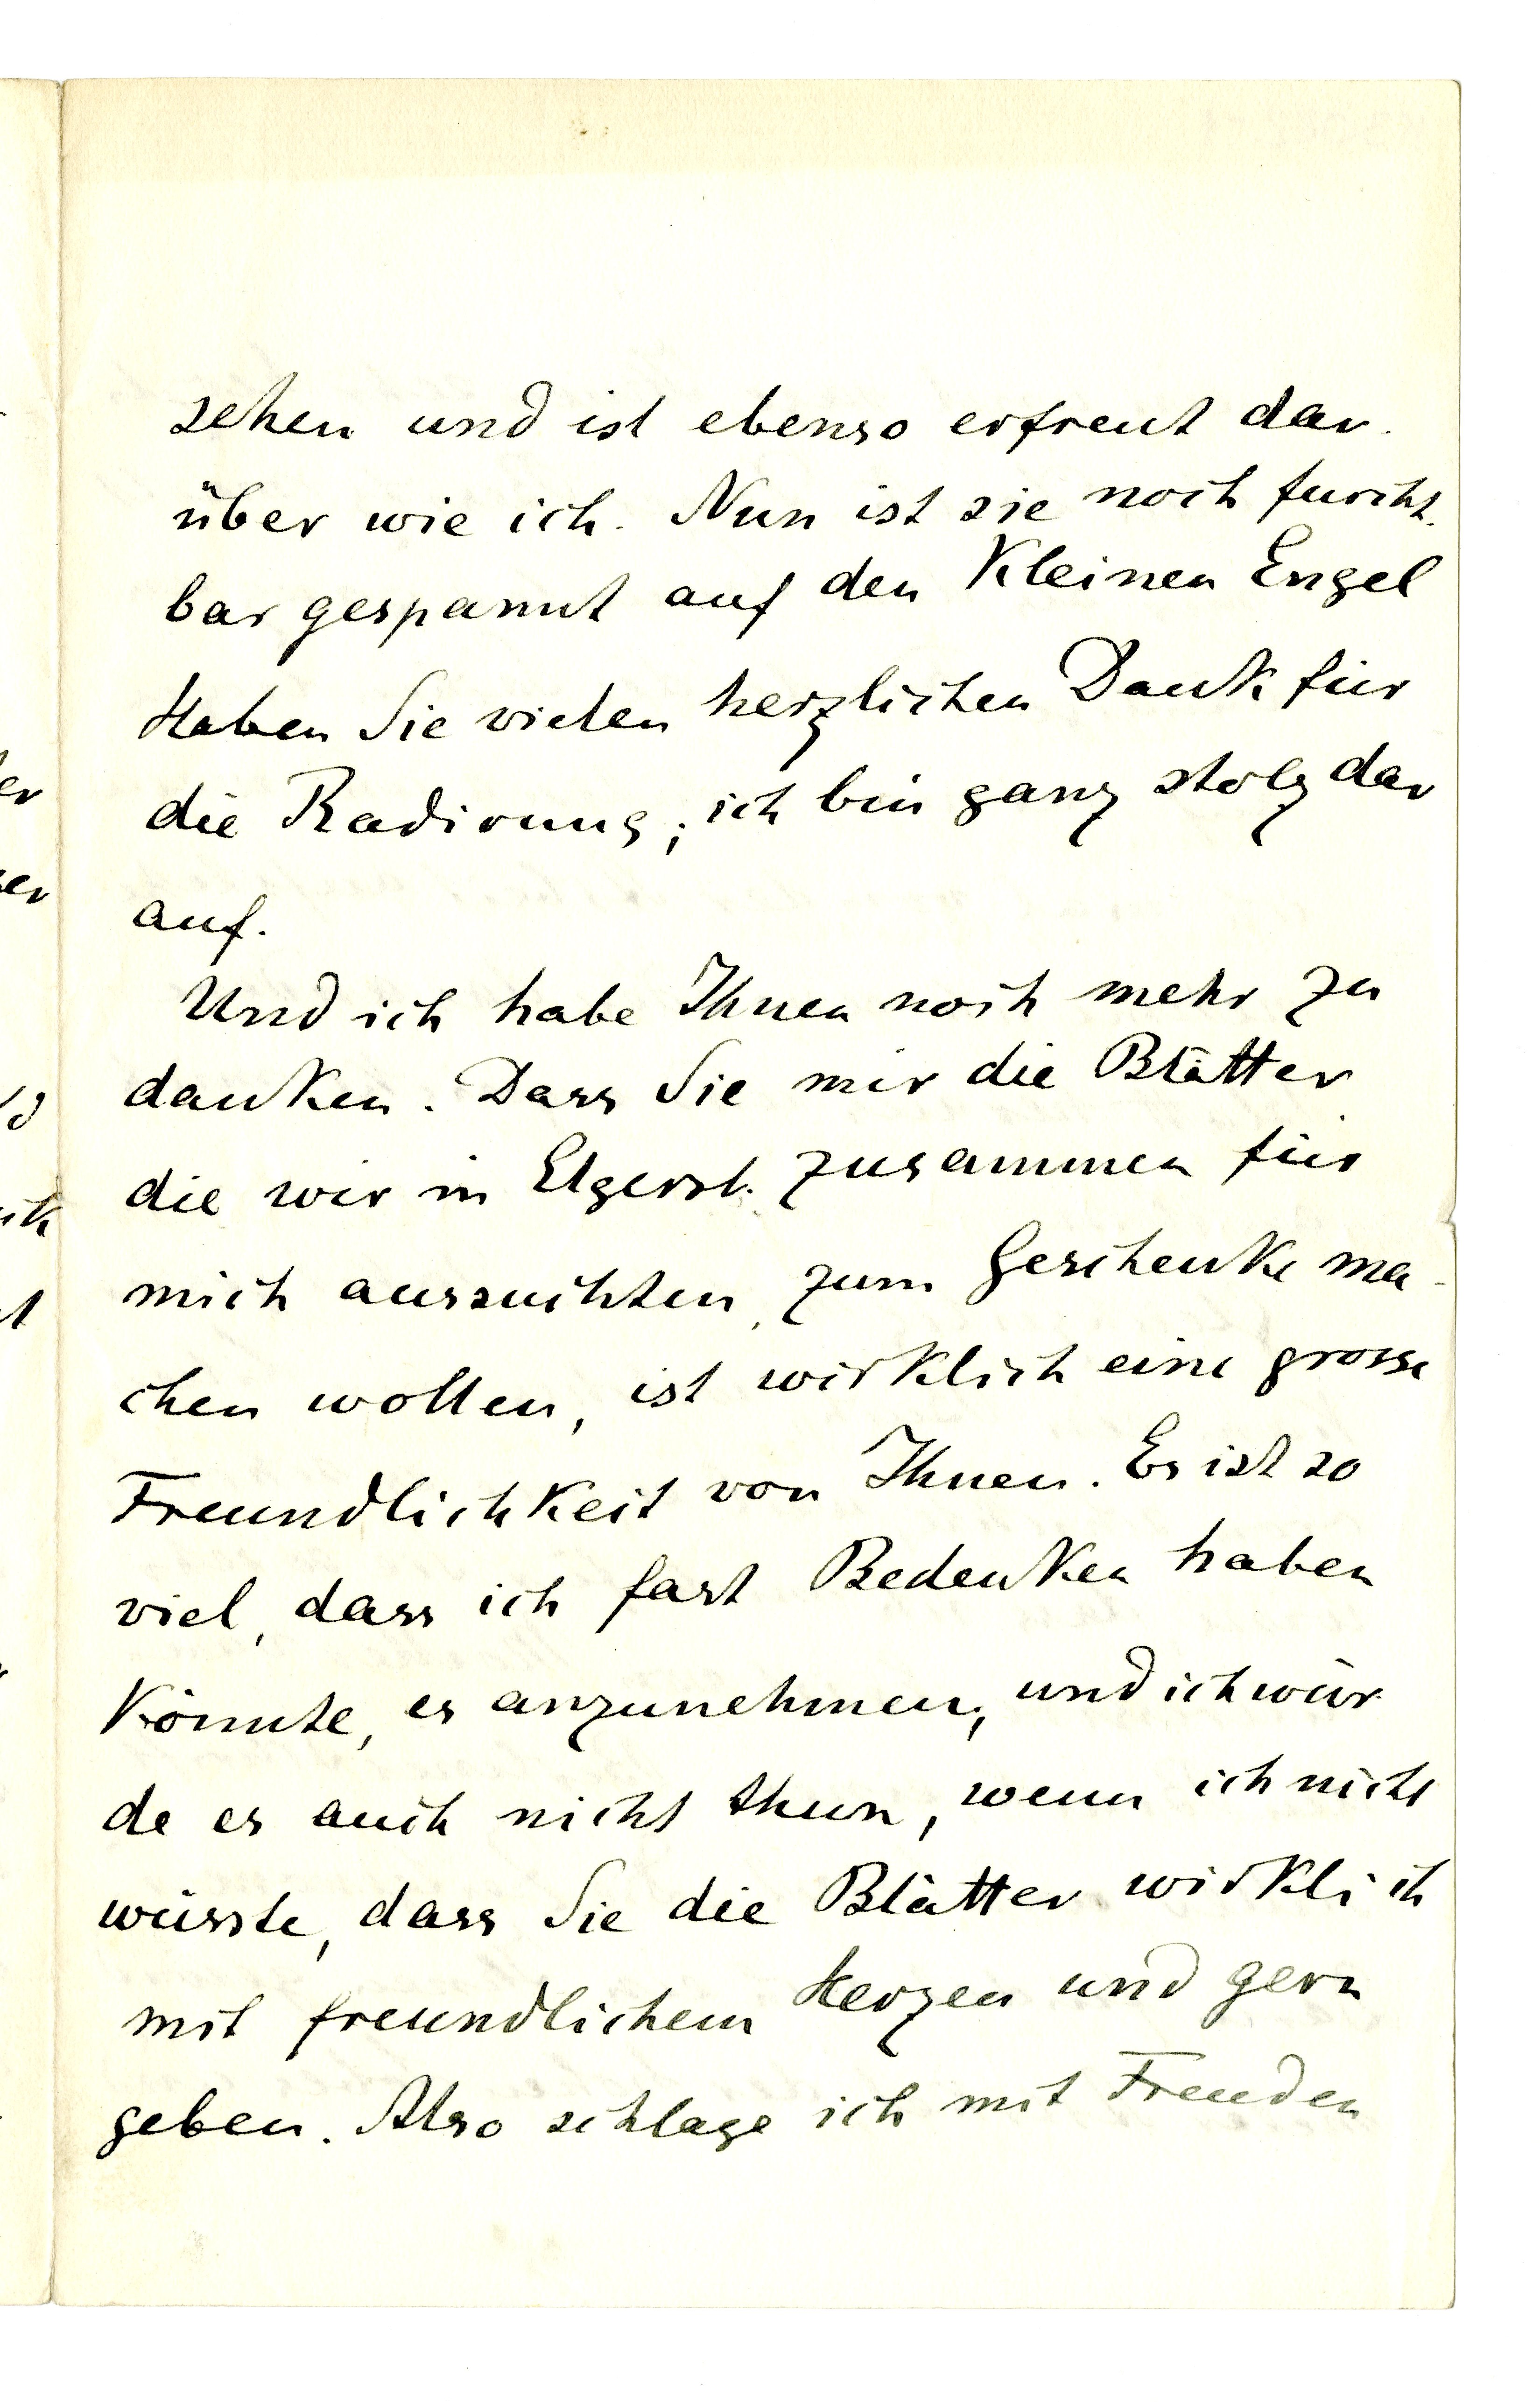 sehen und ist ebenso erfreut dar-
über wie ich. Nun ist sie noch furcht-
bar gespannt auf den Kleinen Engel
Haben Sie vielen herzlichen Dank für
die Radirung; ich bin ganz stolz dar
auf.
Und ich habe Ihnen noch mehr zu
danken. Dass Sie mir die Blätter
die wir in Elgersb. zusammen für
mich aussuchten, zum Geschenke ma-
chen wollen, ist wirklich eine grosse
Freundlichkeit von Ihnen. Es ist so
viel, dass ich fast Bedenken haben
könnte, es anzunehmen, und ich wür
de es auch nicht thun, wenn ich nicht
wüsste, dass Sie die Blätter wirklich
mit freundlichem Herzen und gern
geben. Also schlage ich mit Freuden